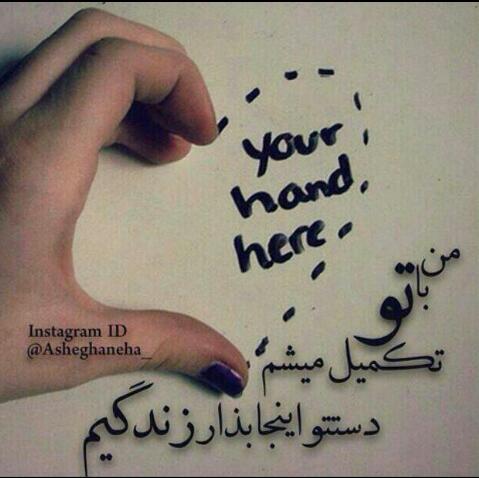 your
hand
here
من
با تو
تکمیل میشم
دستتو اینجا بذار زندگیم
Instagram ID
@Asheghaneha_